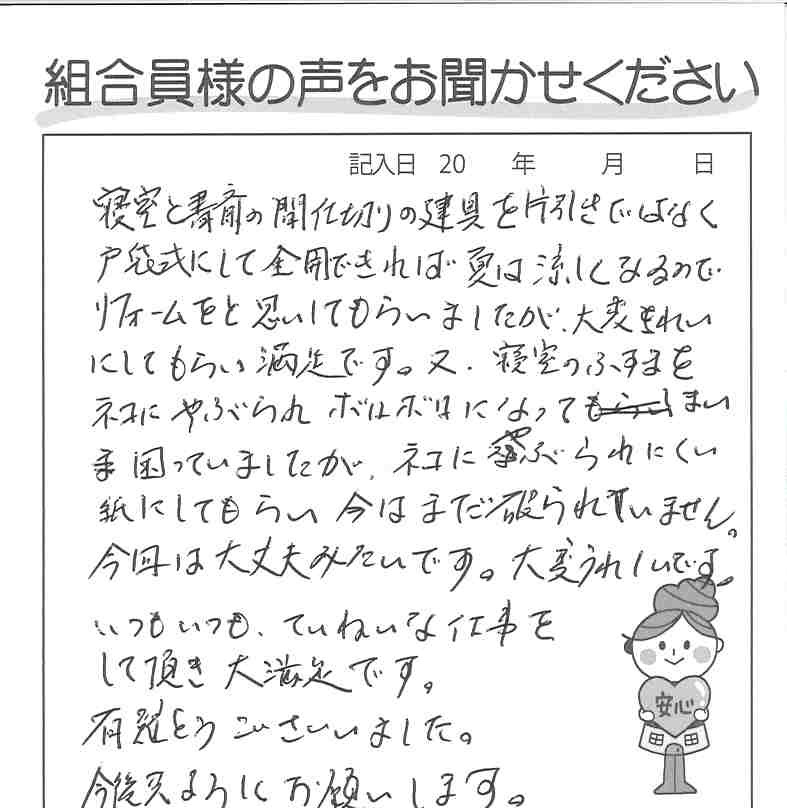 組合員様の声をお聞かせください
記入日 20 年 月 日
寝室と書斎の間仕切りの建具を片引きではなく
戸袋式にして全開できれば夏は涼しくなるので
リフォームをと思いしてもらいましたが、大変きれい
にしてもらい満足です。又、寝室のふすまを
ネコにやぶられボロボロになってしまい
困っていましたが、ネコにやぶられにくい
紙にしてもらい今はまだ破られていません。
今回は大丈夫みたいです。大変うれしいです。
いつもいつも、ていねいな仕事を
して頂き大満足です。
有難とうございました。
今後共ようにお願いします。
安心